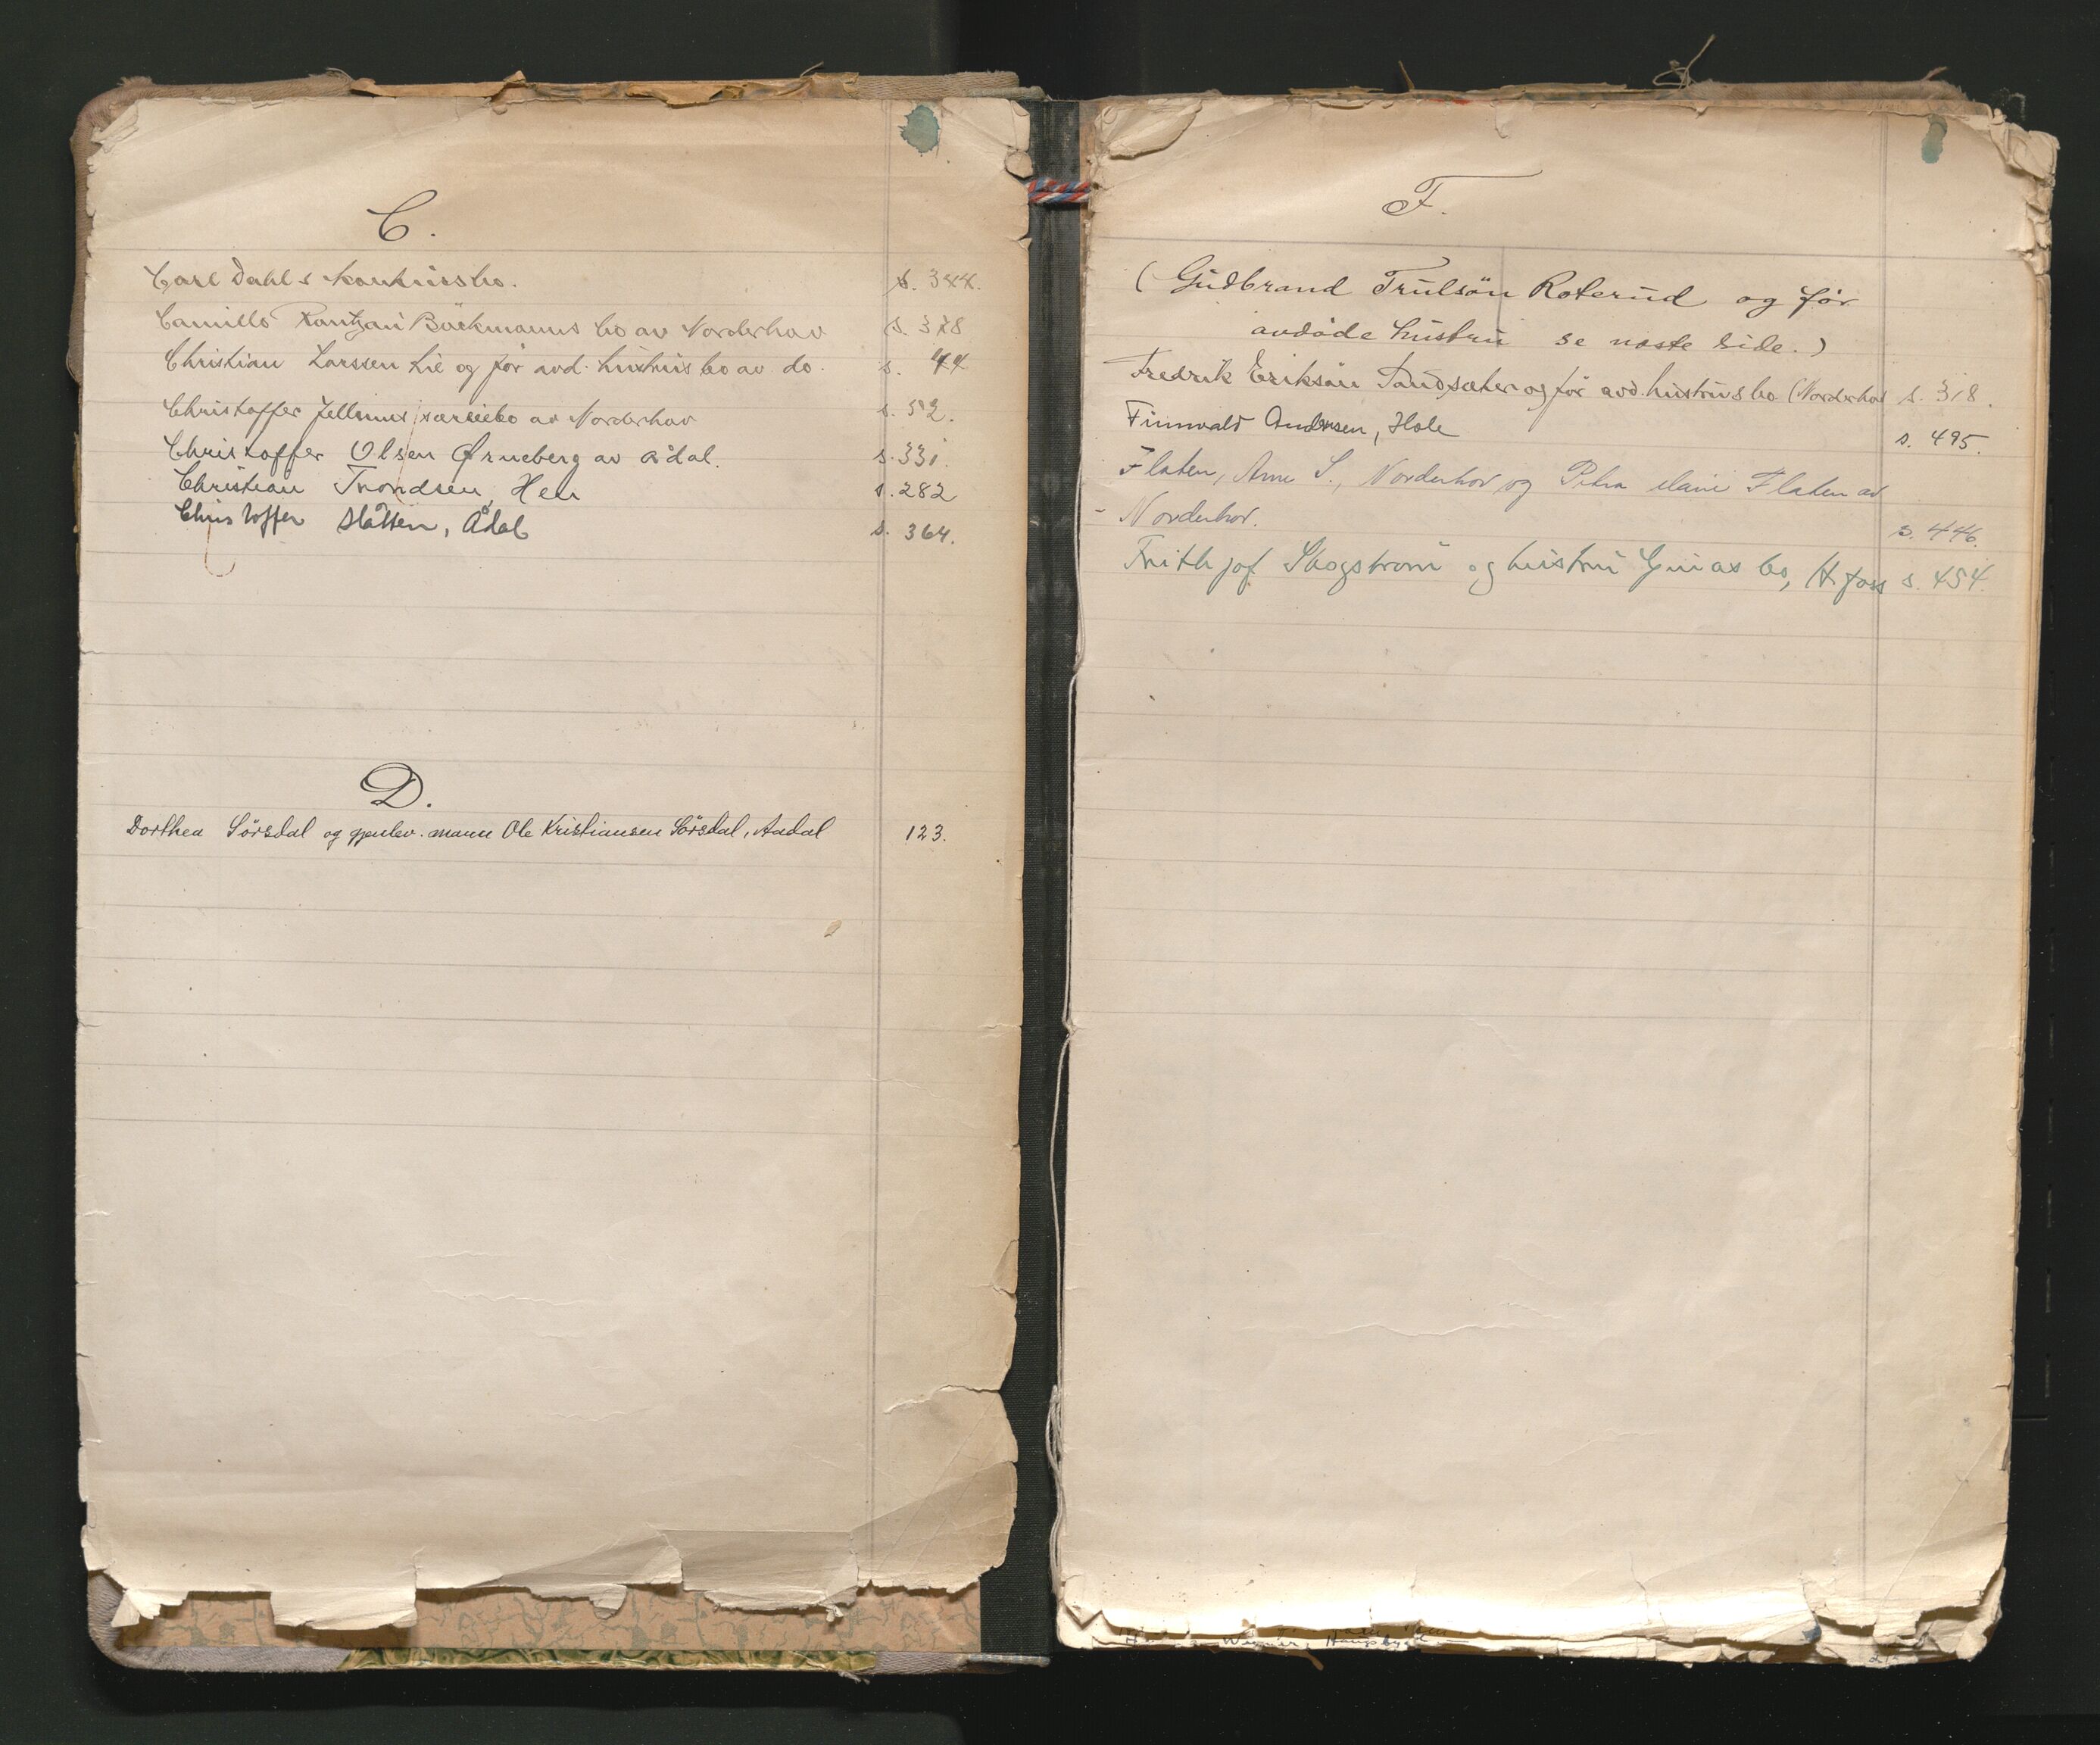 C.
Carl Dahls konkursbo. s. 344.
Camillo Rantzau Böckmanns bo av Norderhov s. 378
Christian Larssen Lie og før avd. hustrus bo av do. s. 44
Christoffer Jellums særeiebo av Norderhov s. 52.
Christoffer Olsen Ørneberg av Ådal. s. 331.
Christian Trondsen, Hen s. 282
Christoffer Slåtten, Ådal s. 364.
D.
Dorthea Sörsdal og gjenlev. mann Ole Kristiansen Sörsdal, Aadal 123.
F.
(Gudbrand Trulsön Roterud og før
avdöde hustru se næste side.)
Fredrik Eriksön Sandsæter og før avd. hustrus bo (Norderhov s. 318.
Finnvald Andersen, Hole s. 495.
Flaten, Arne S., Norderhov og Petra Flaten av
- Norderhov. s. 446.
Frithjof Skogstrøm og hustru bo, H.foss s. 454.